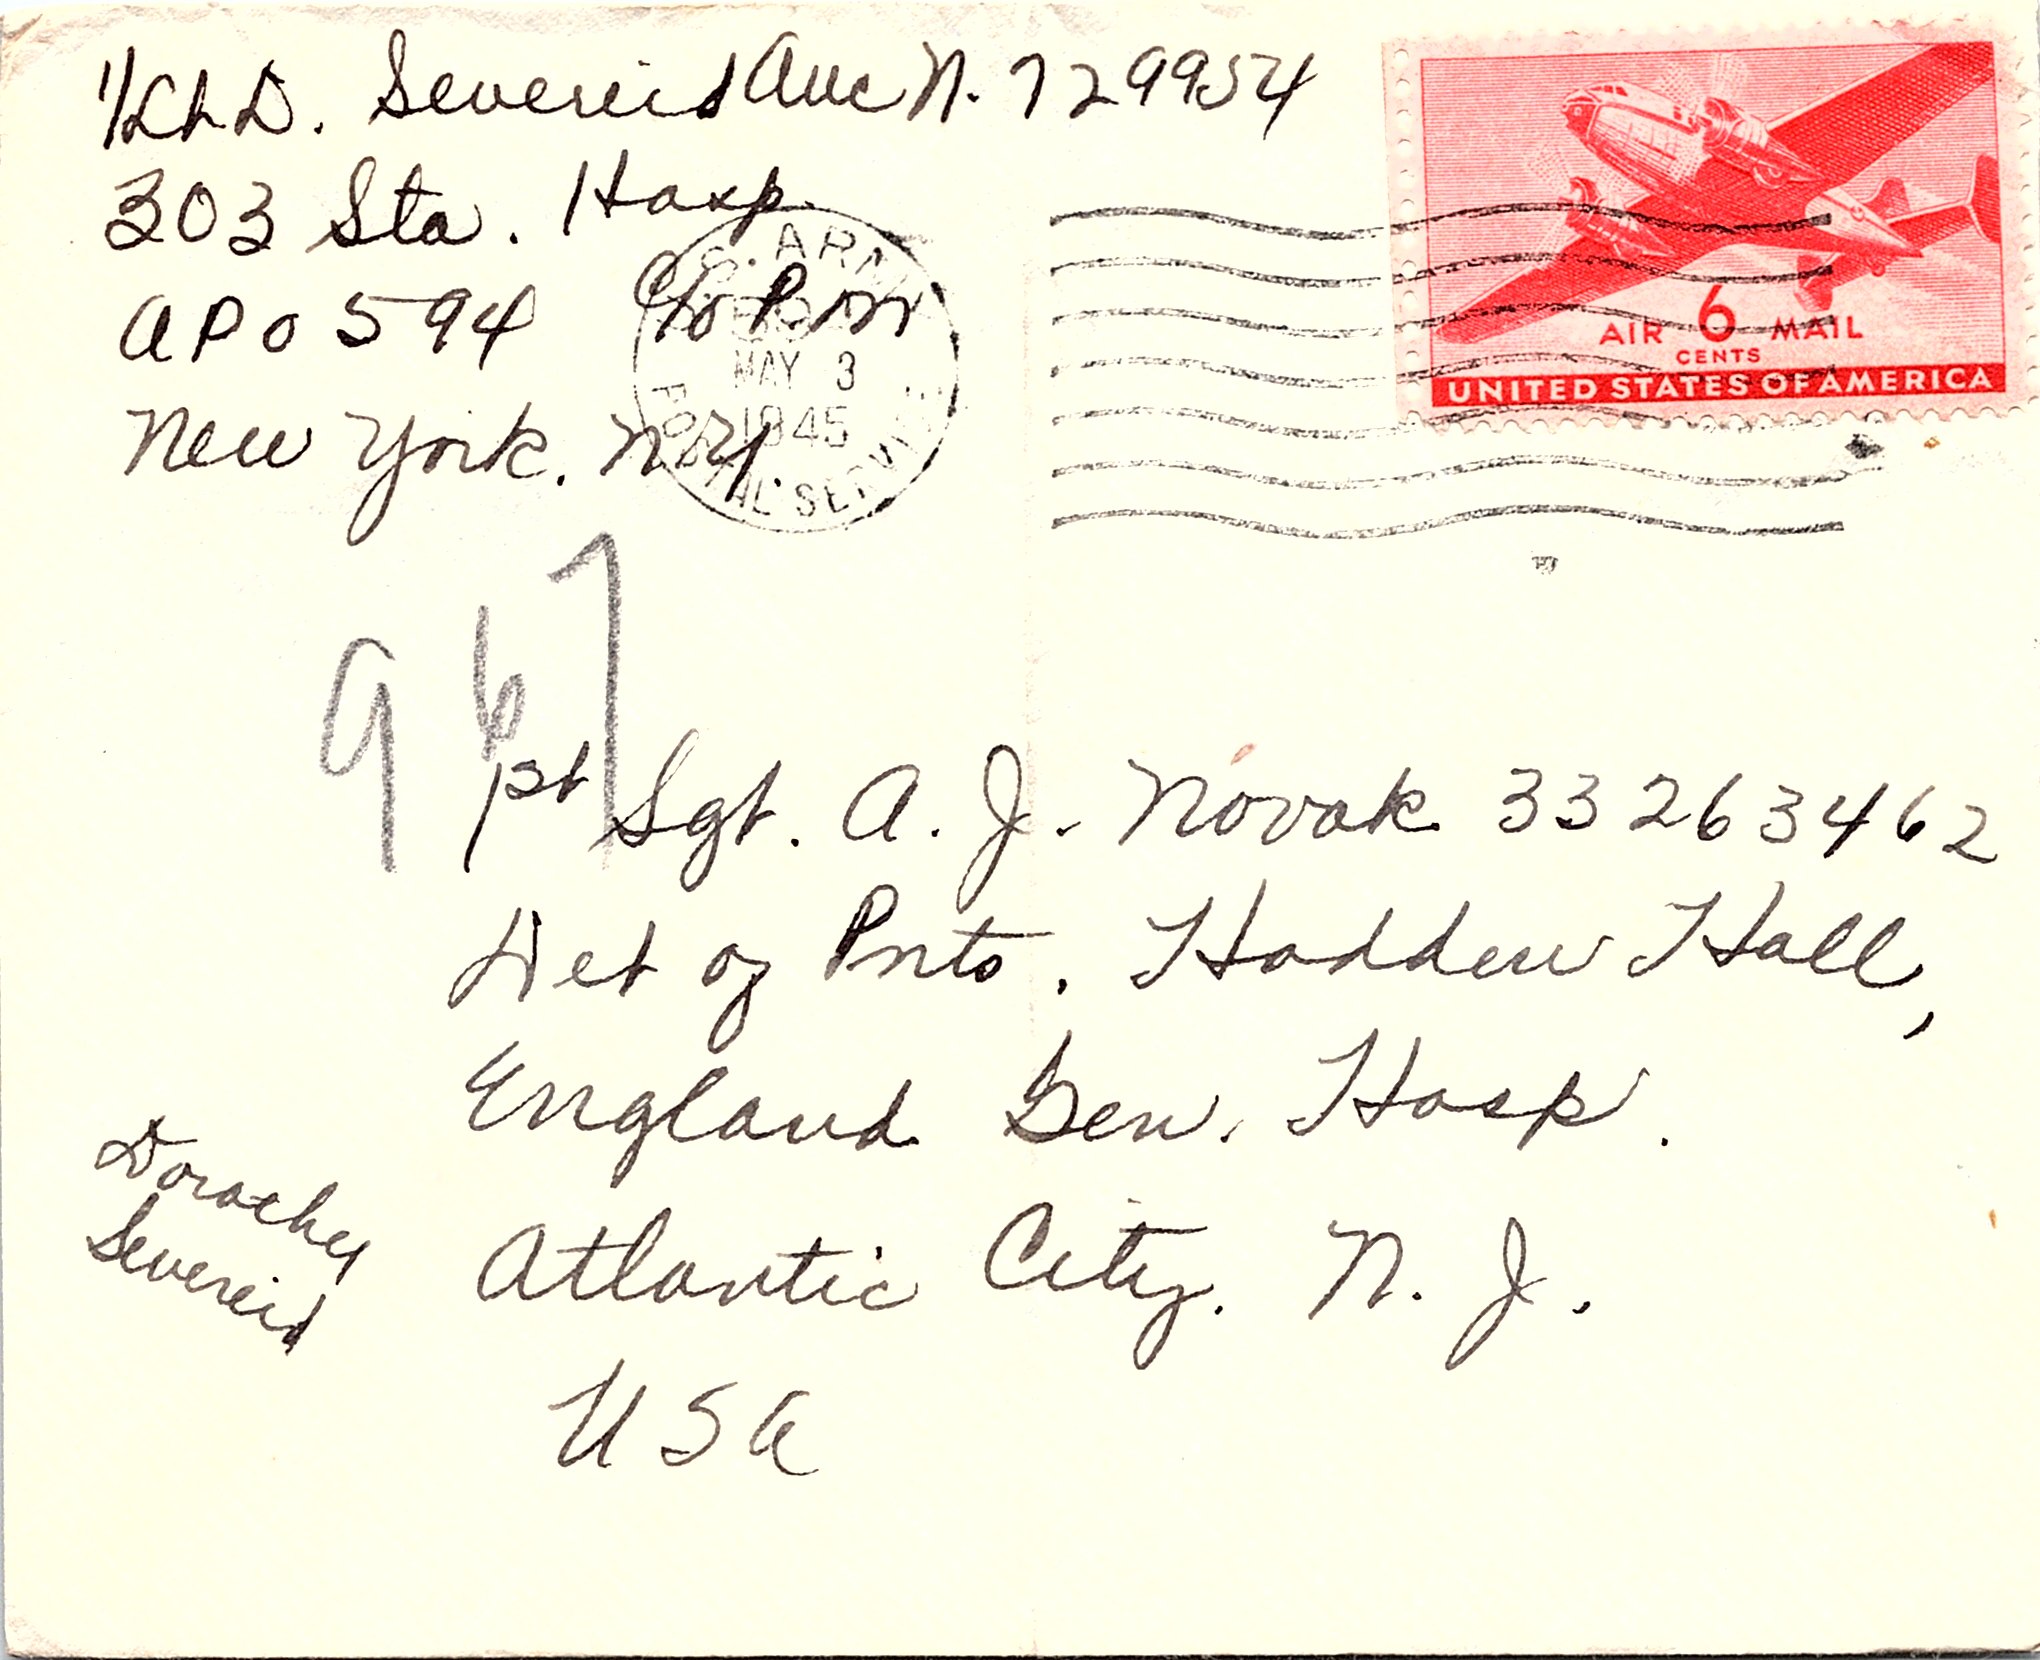 1/Lt D. Severeid ANC N. 729954
303 Sta. Hosp.
APO 594 c/o P.M.
New York. N.Y.
U.S. ARMY
MAY 3
1945
POSTAL SERVICE
AIR 6 MAIL
CENTS
UNITED STATES OF AMERICA
967
1st Sgt. A. J. Novak 33263462
Det of Pnts. Hadden Hall,
England Gen. Hosp.
Atlantic City. N. J.
USA
Dorothy
Severeid